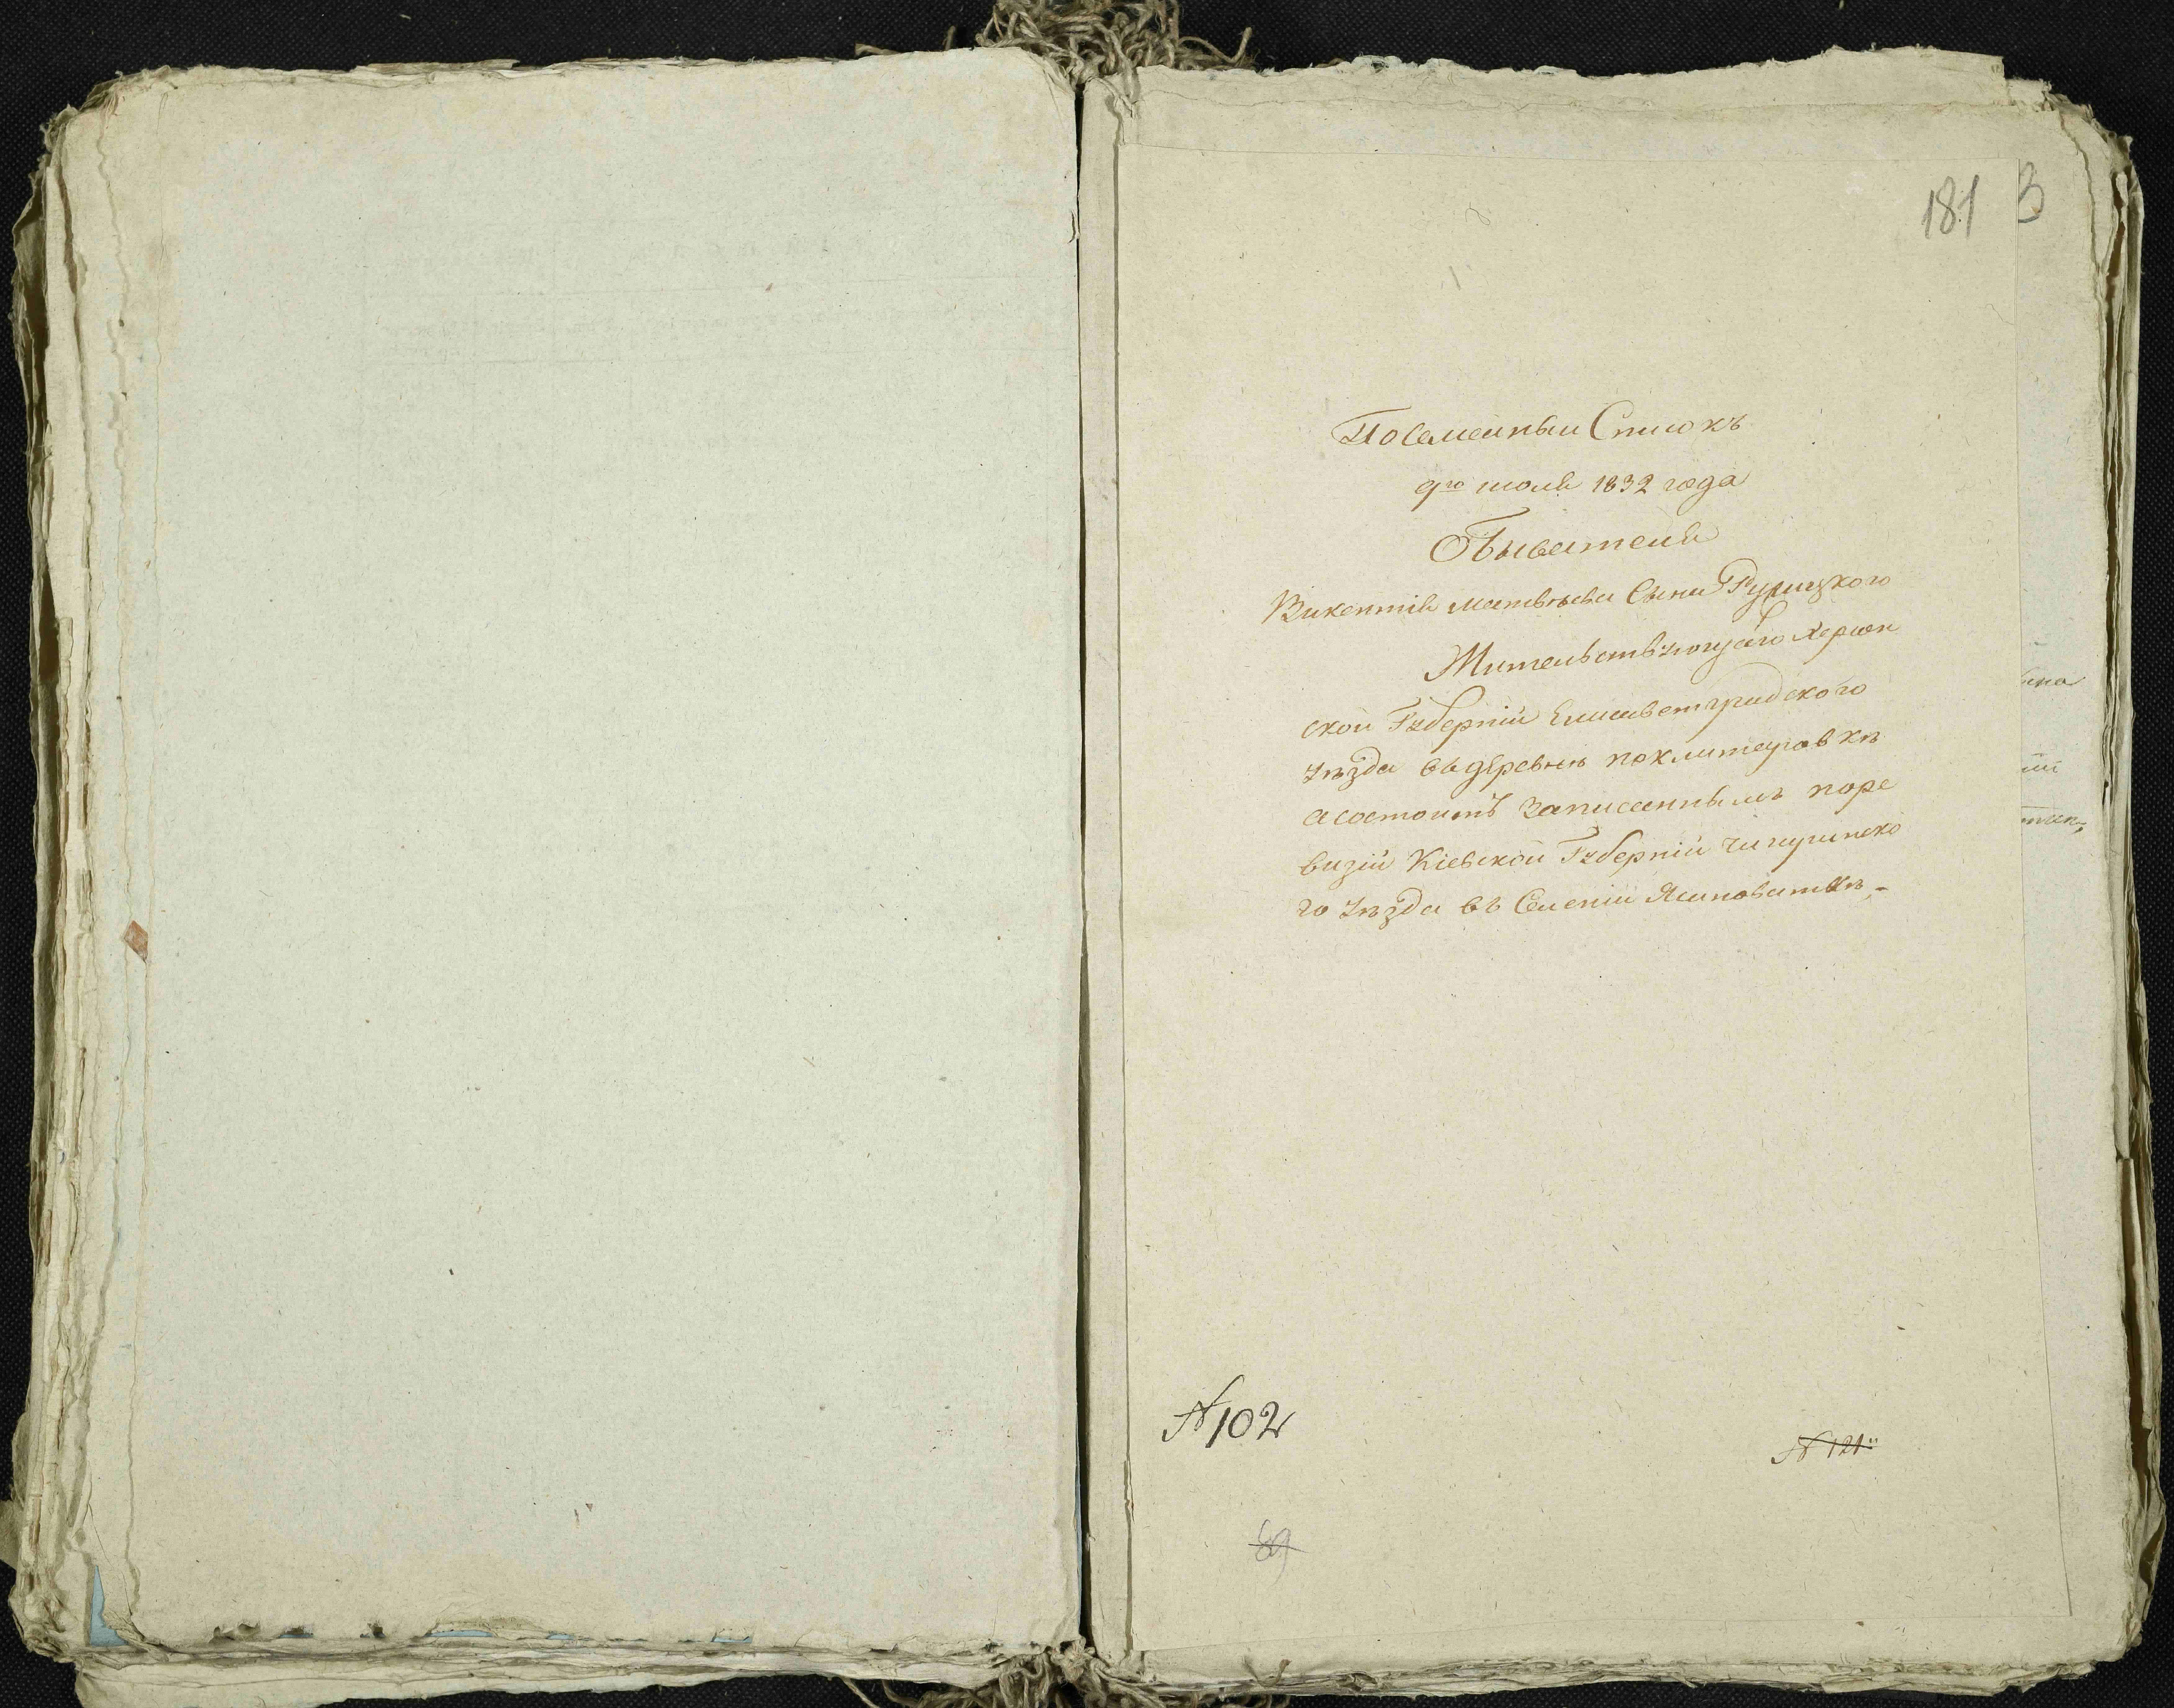 181
3
Посемейный Списокъ
9го июля 1832 года
Обывателя
Викентія матвѣева Сына Рулицкого
Жительствующаго Херсон
ской Губерніи Елисаветградского
Уѣзда въ деревнѣ
а состоитъ записаннымъ поре
визіи Кіевской Губерніи чигиринско
го Уѣзда въ Селеніи Ясиноваткѣ
№102
№ 121
89